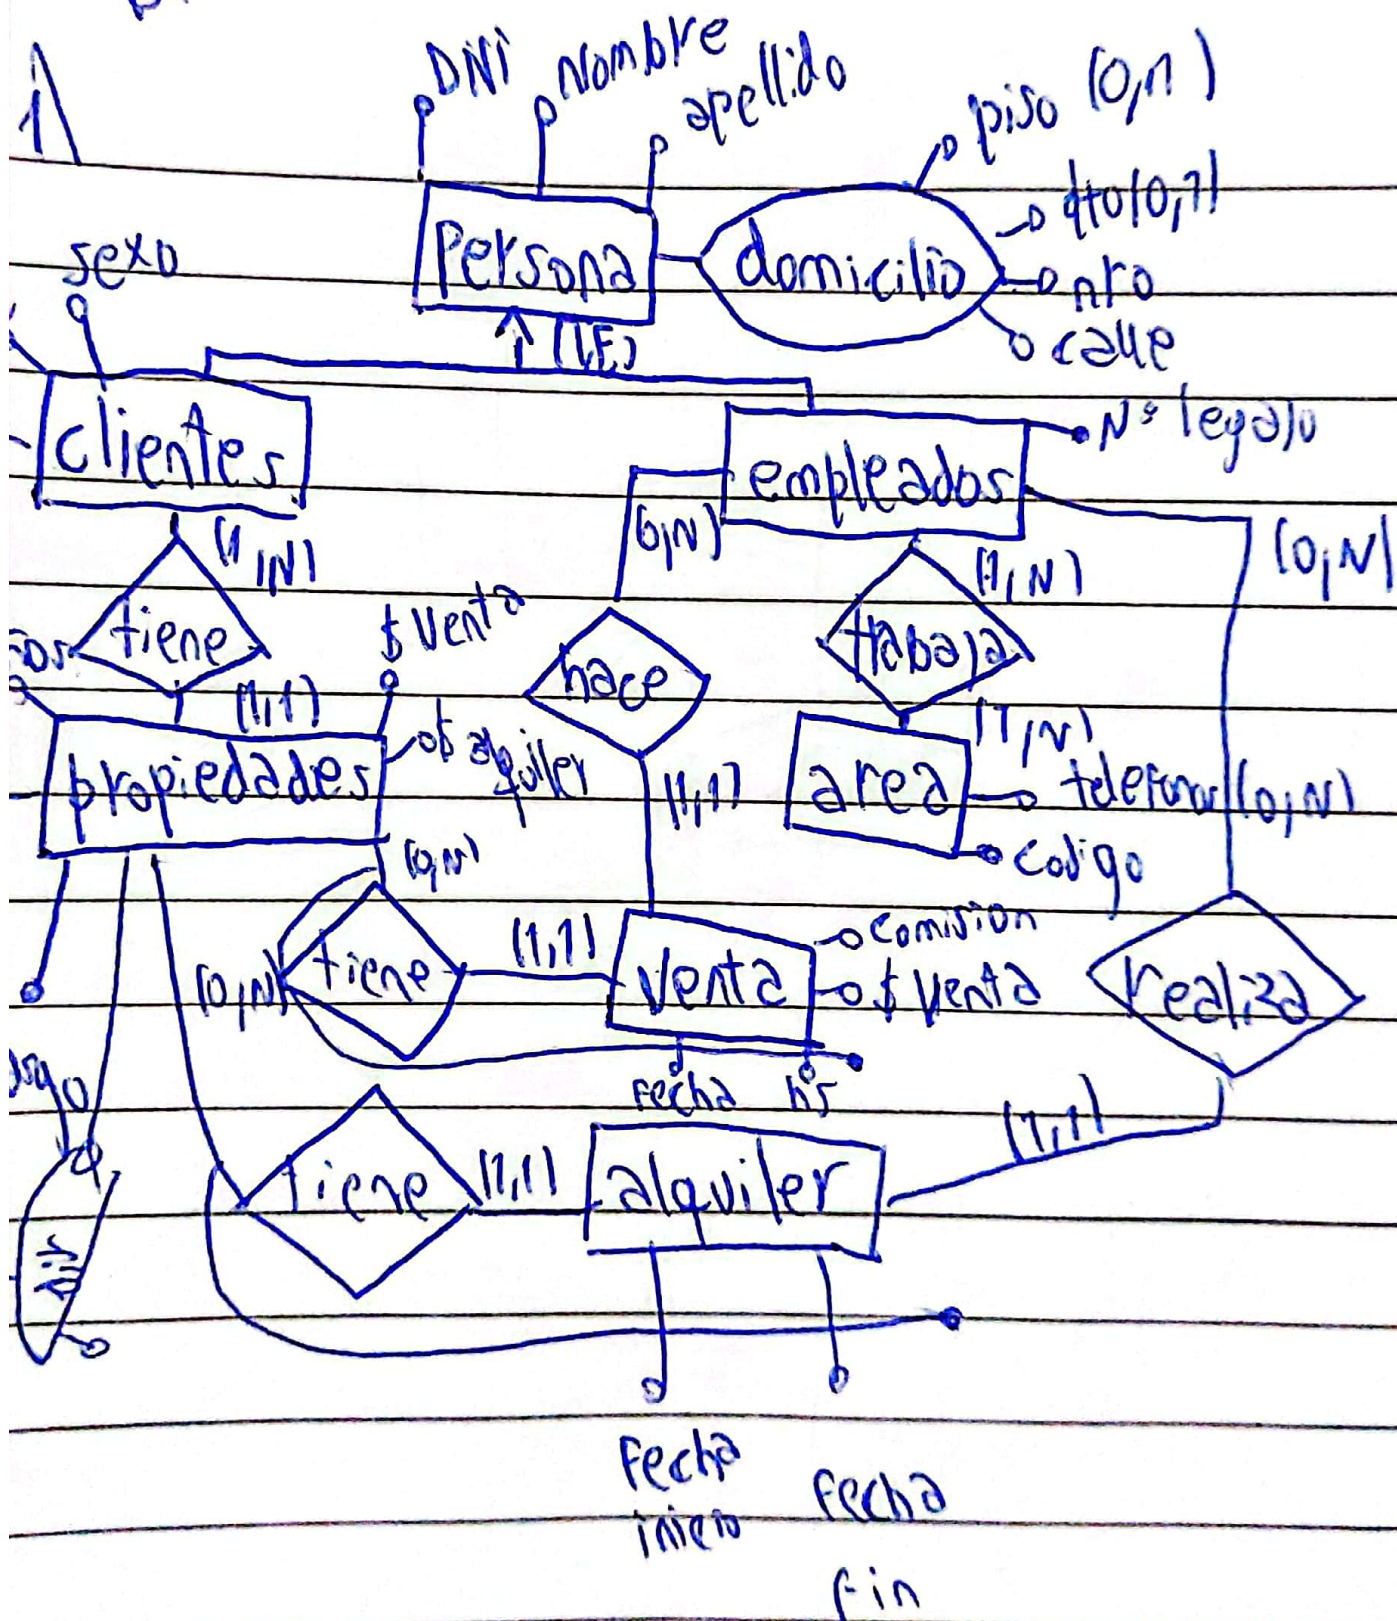 1
DNI
Nombre
apellido
piso (0,1)
dto (0,1)
nro
calle
Persona
domicilio
(T,E)
sexo
clientes
empleados
Nº legajo
(1,N)
(0,N)
(1,N)
(0,N)
tiene
$ Venta
hace
trabaja
(1,1)
(1,N)
propiedades
$ alquiler
(1,1)
area
telefonos (0,N)
codigo
(0,N)
(0,N)
tiene
(1,1)
venta
comision
$ Venta
realiza
fecha
hs
(1,1)
tiene
(1,1)
alquiler
fecha
inicio
fecha
fin